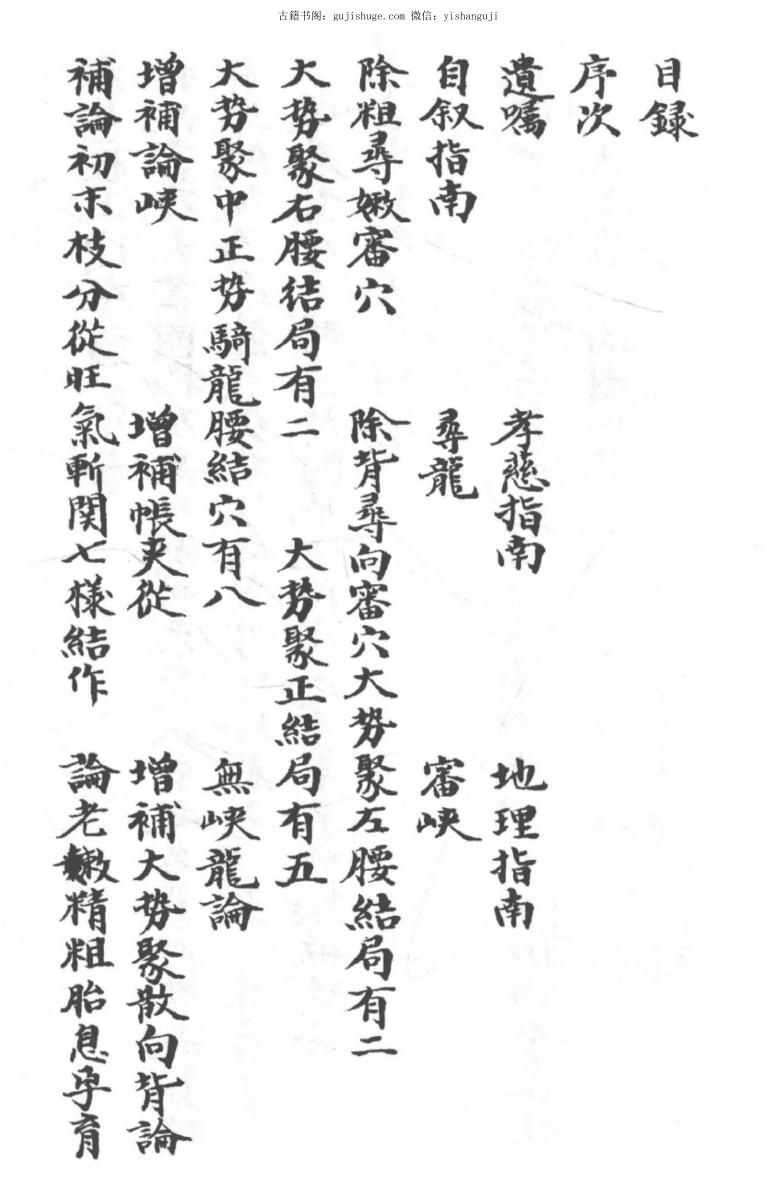 古籍书阁：gujishuge.com 微信：yishanguji
目録
序次
遺嘱 孝慈指南 地理指南
自叙指南 尋龍 審峽
除粗尋嫩審穴 除背尋向審穴大势聚左腰結局有二
大势聚右腰結局有二 大势聚正結局有五
大势聚中正势騎龍腰結穴有八 無峽龍論
增補論峽 增補帳夹從 增補大势聚散向背論
補論初末枝分從旺氣斬関七様結作 論老嫩精粗胎息孕育